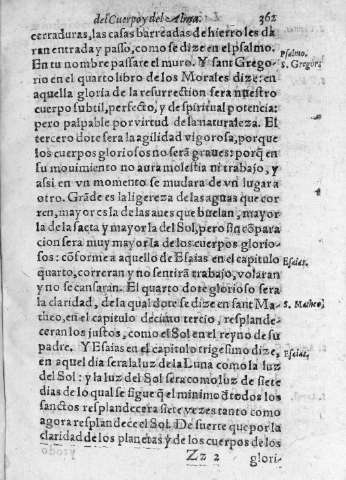 del Cuerpo y del Alma. 362
cerraduras, las casas barreadas de hierro les dã
ran entrada y passo, como se dize en el psalmo.
Psalmo.
En tu nombre passare el muro. Y sant Grego-
S. Gregori
rio en el quarto libro de los Morales dize: en
aquella gloria de la resurrection sera nuestro
cuerpo subtil, perfecto, y de spiritual potencia:
pero palpable por virtud de la naturaleza. El
tercero dote sera la agilidad vigorosa, porque
los cuerpos gloriosos no serã graues: porq̃ en
su mouimiento no aura molestia ni trabajo, y
assi en vn momento se mudara de vn lugar a
otro. Grãde es la ligereza de las aguas que cor
ren, mayor es la de las aues que buelan, mayor
la de la saeta y mayor la del Sol, pero sin cõpara
cion sera muy mayor la de los cuerpos glorio-
sos: cõforme a aquello de Esaias en el capitulo
Esaias.
quarto, correran y no sentirã trabajo, volaran
y no se cansaran. El quarto dote glorioso sera
la claridad, de la qual dote se dize en sant Ma-
S. Matheo.
theo, en el capitulo decimo tercio, resplande-
ceran los justos, como el Sol en el reyno de su
padre. Y Esaias en el capitulo trigesimo dize,
Esaias.
en aquel dia sera la luz de la Luna como la luz
del Sol: y la luz del Sol sera como luz de siete
dias de lo qual se sigue q̃ el minimo d̃ todos los
sanctos resplandecera siete vezes tanto como
agora resplandece el Sol. De suerte que por la
claridad de los planetas y de los cuerpos de los
Zz 2 glori-